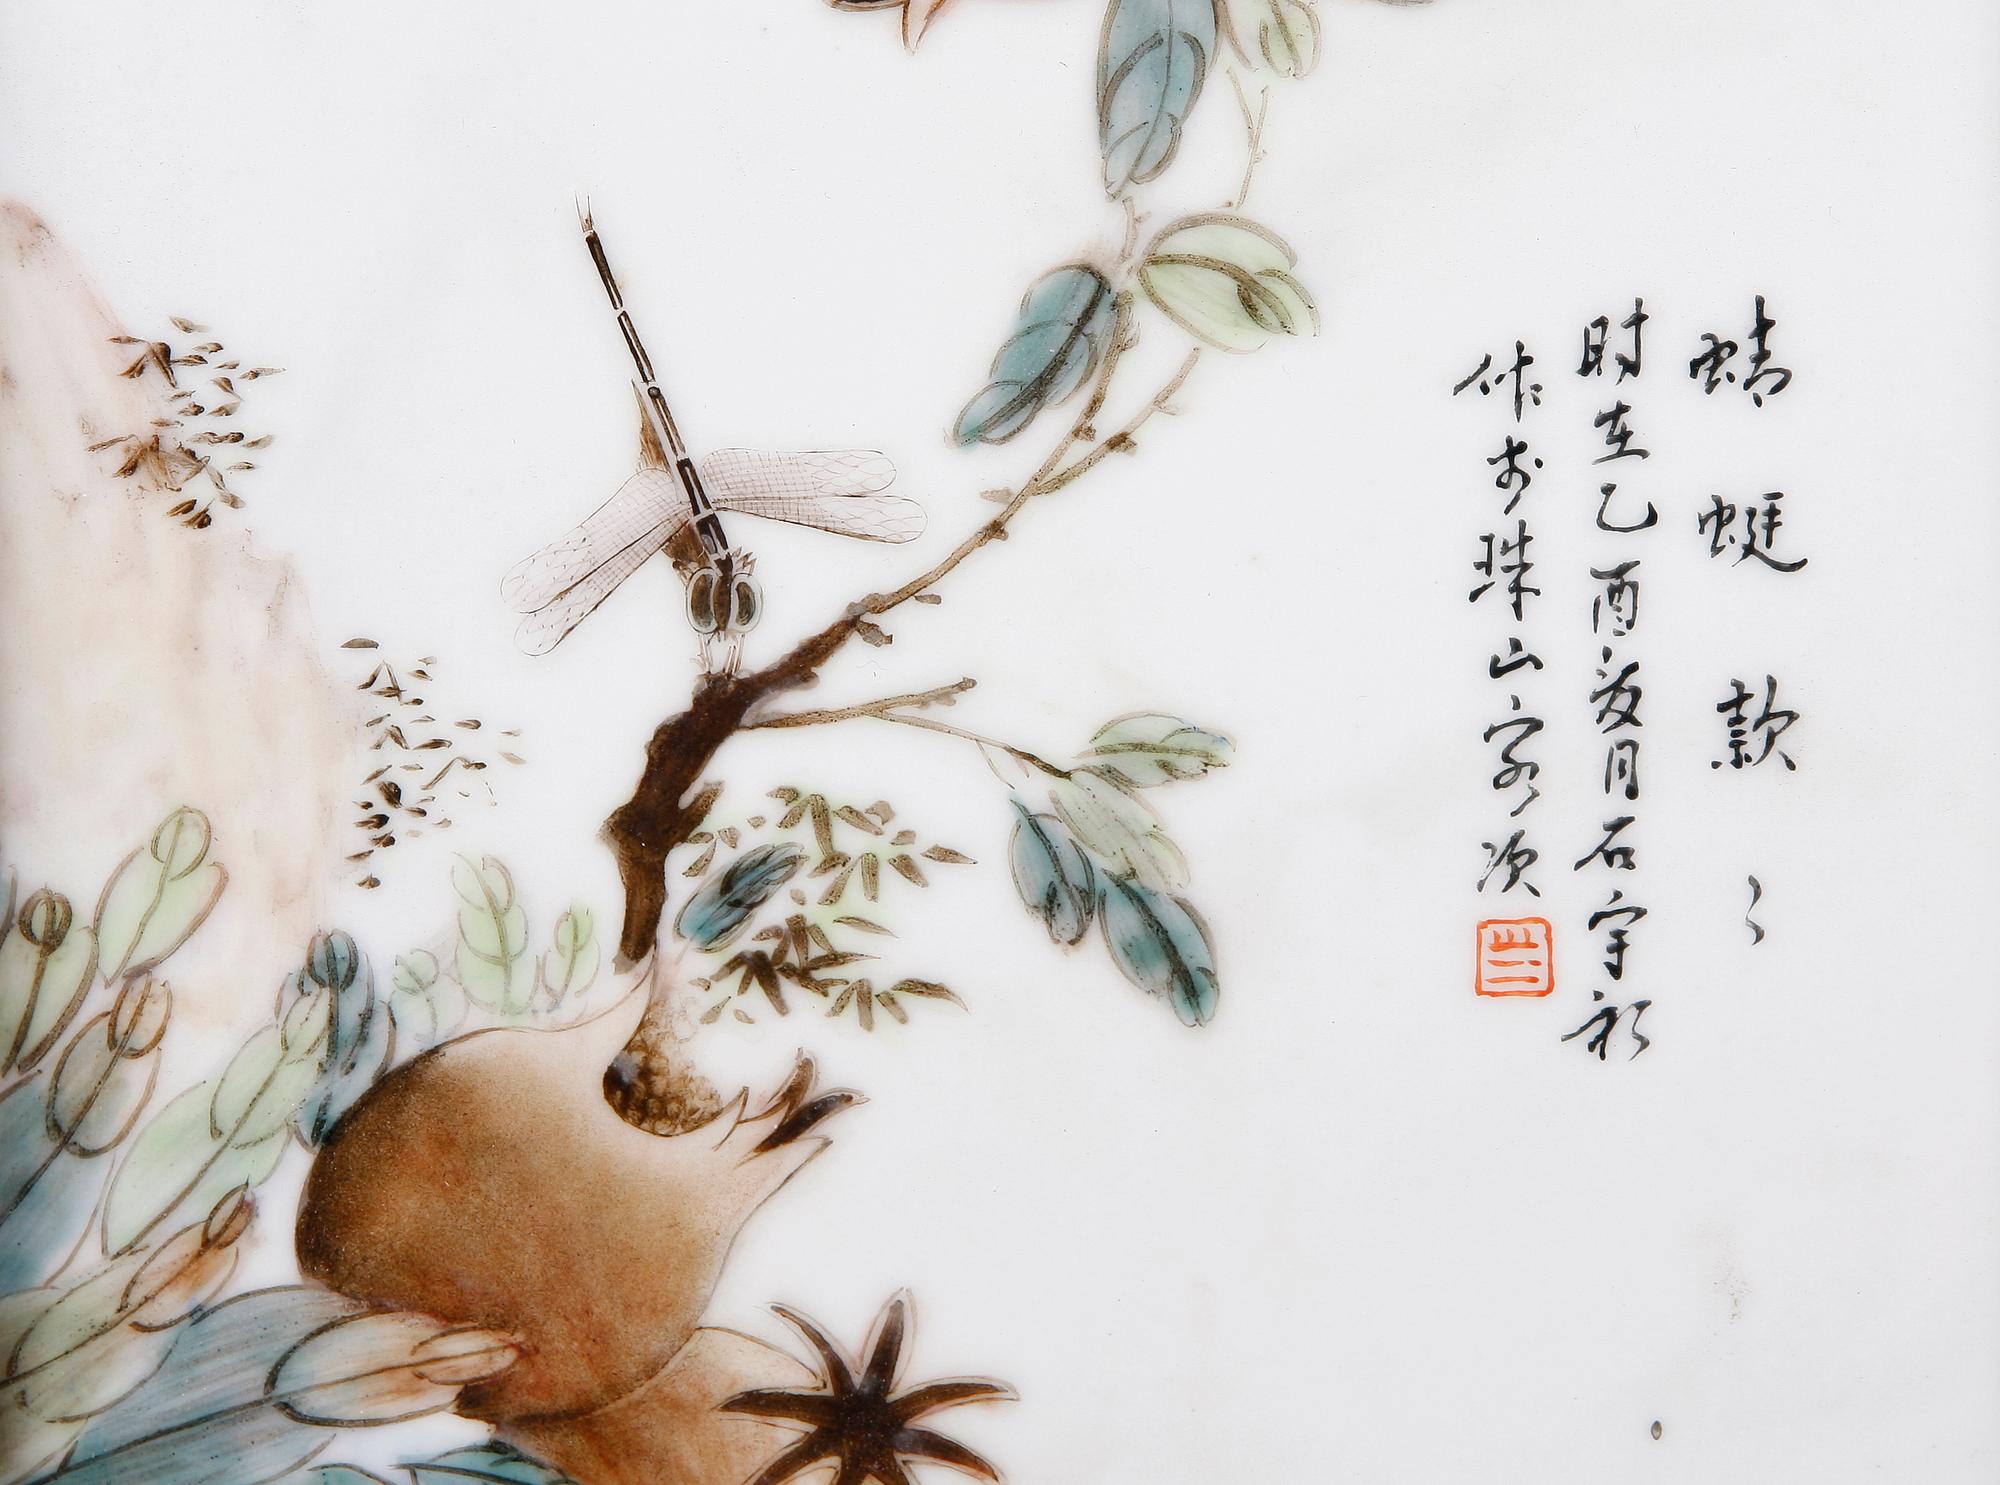 蜻蜓款々
时在乙酉夏月石宇初
作于珠山客次